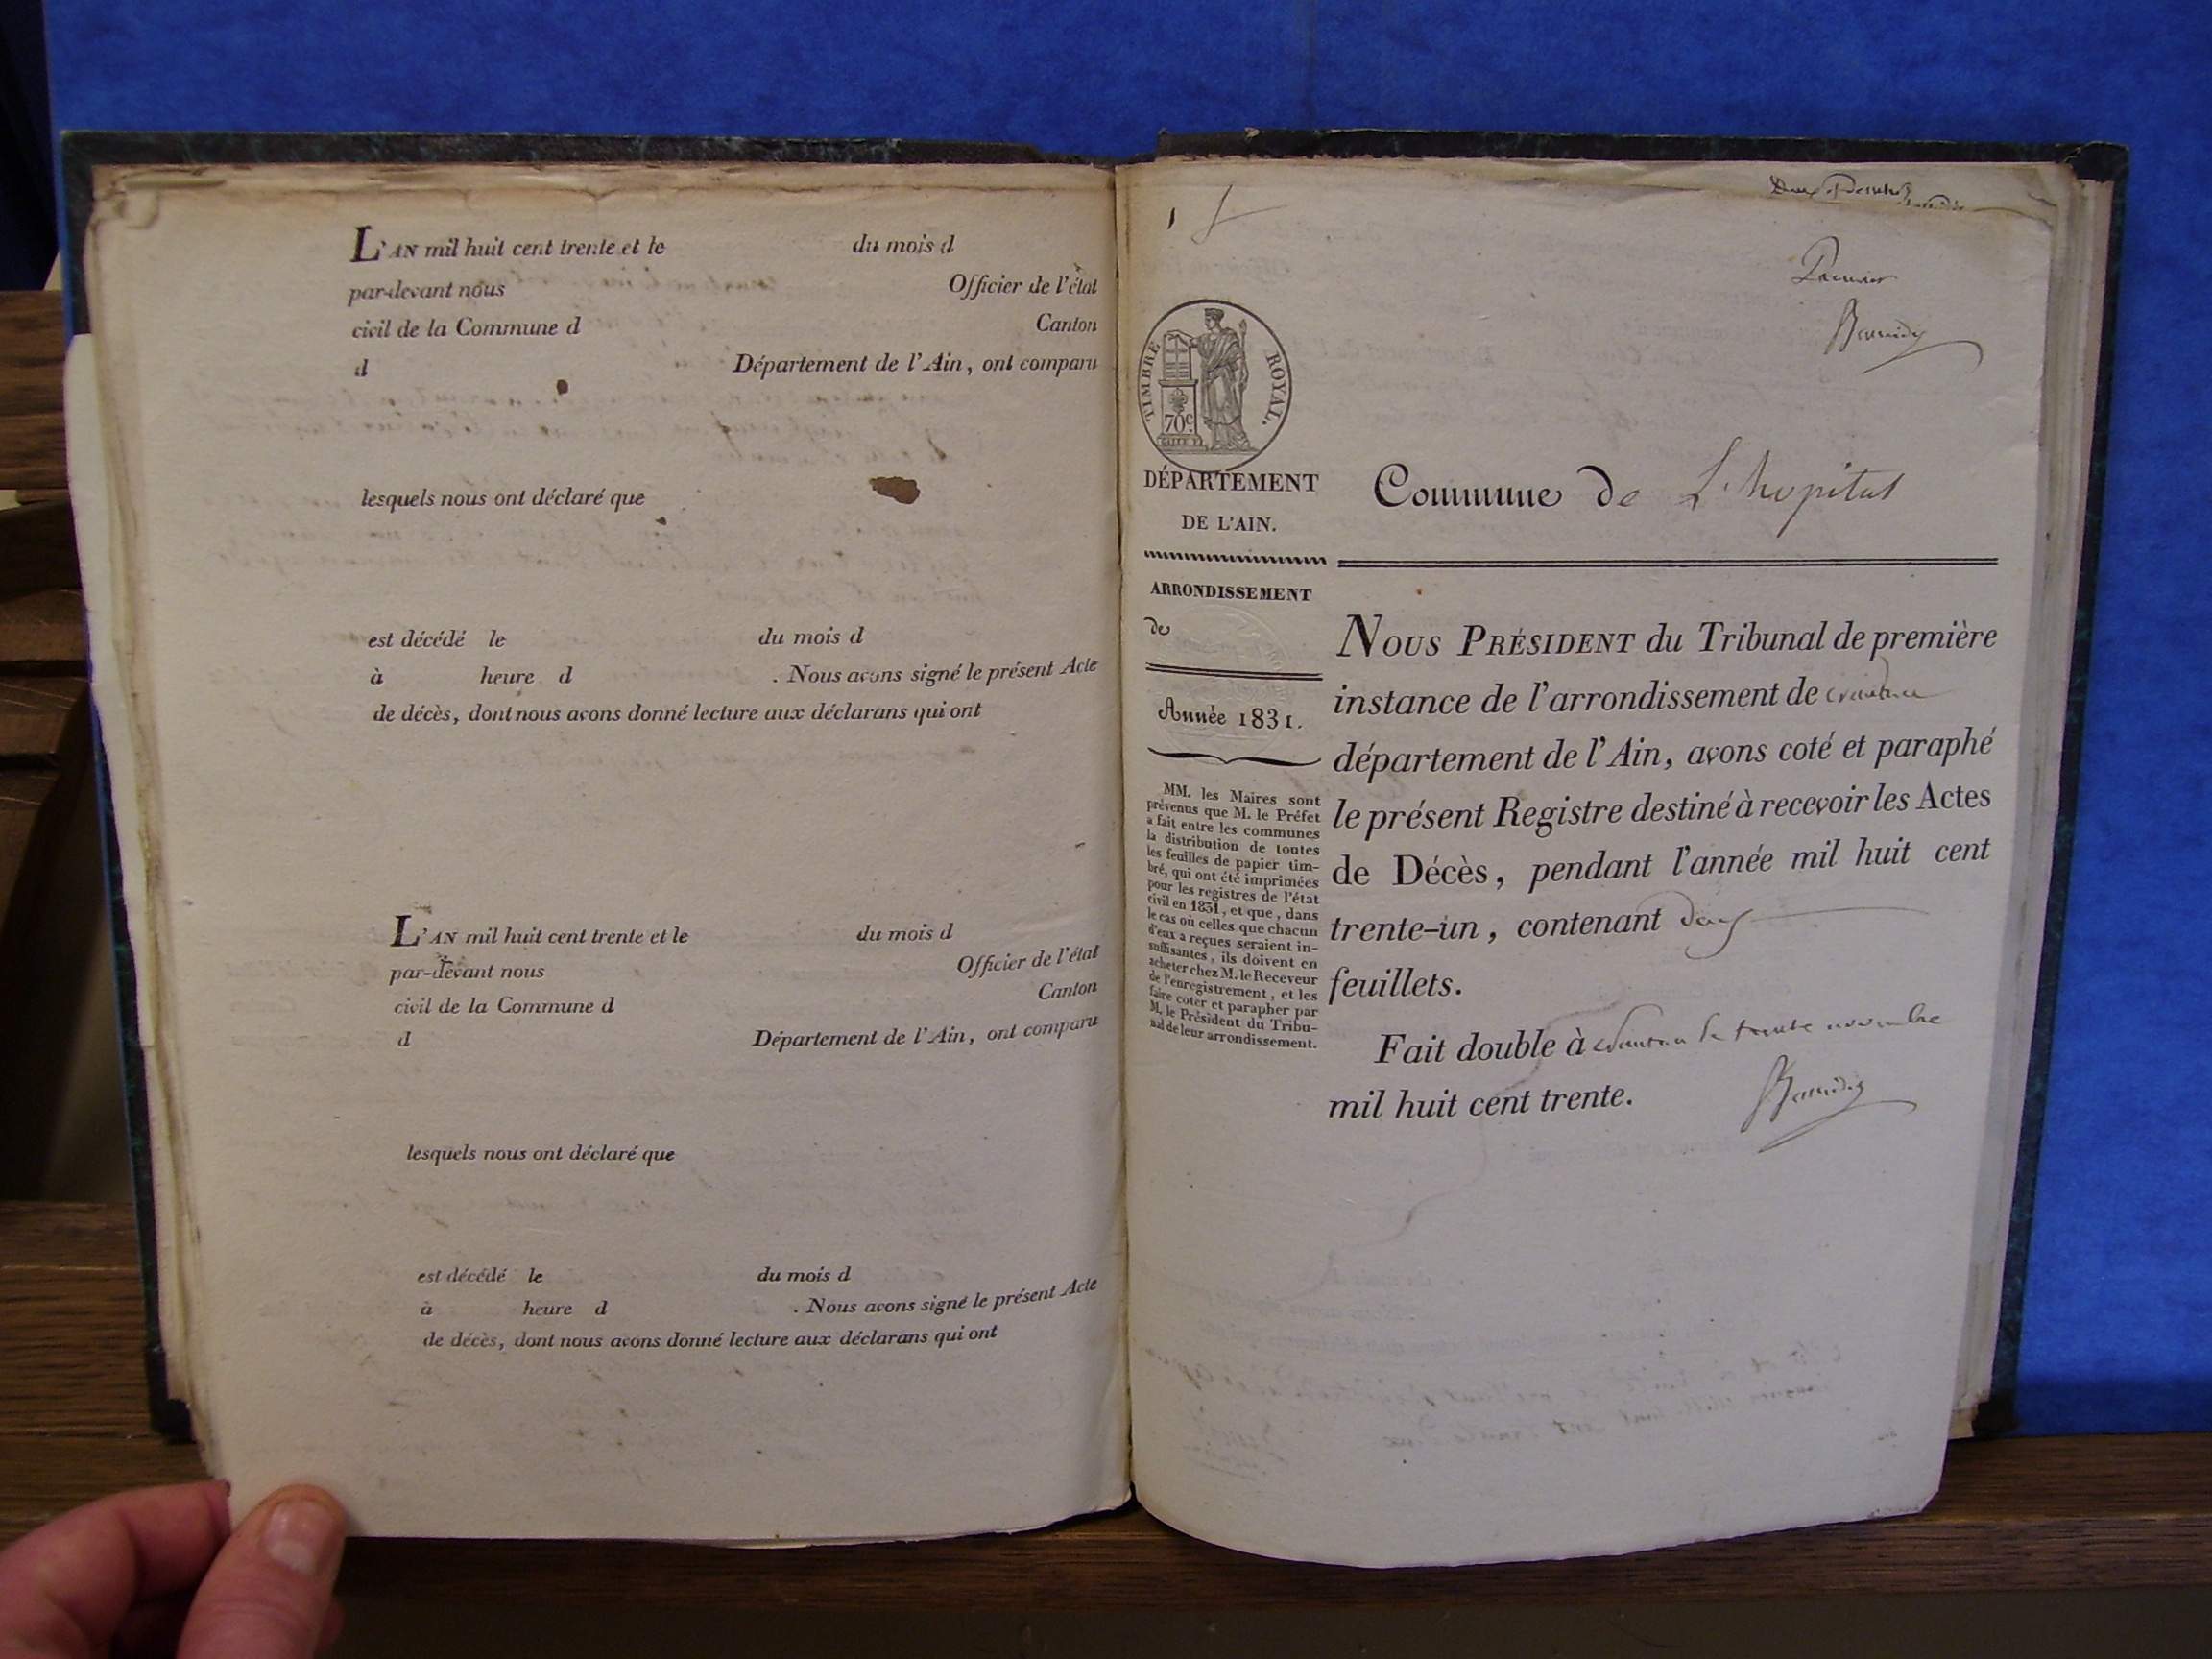 L'AN mil huit cent trente et le du mois d
par-devant nous Officier de l'état
civil de la Commune d Canton
d Département de l'Ain, ont comparu
lesquels nous ont déclaré que
est décédé le du mois d
à heure d . Nous avons signé le présent Acte
de décès, dont nous avons donné lecture aux déclarans qui ont
L'AN mil huit cent trente et le du mois d
par-devant nous Officier de l'état
civil de la Commune d Canton
d Département de l'Ain, ont comparu
lesquels nous ont déclaré que
est décédé le du mois d
à heure d . Nous avons signé le présent Acte
de décès, dont nous avons donné lecture aux déclarans qui ont
1
TIMBRE ROYAL.
70c
DÉPARTEMENT
DE L'AIN.
ARRONDISSEMENT
de
Année 1831.
MM. les Maires sont
prévenus que M. le Préfet
a fait entre les communes
la distribution de toutes
les feuilles de papier tim-
bré, qui ont été imprimées
pour les registres de l'état
civil en 1831, et que, dans
le cas où celles que chacun
d'eux a reçues seraient in-
suffisantes, ils doivent en
acheter chez M. le Receveur
de l'enregistrement, et les
faire coter et parapher par
M. le Président du Tribu-
nal de leur arrondissement.
Commune de L'hopital
NOUS PRÉSIDENT du Tribunal de première
instance de l'arrondissement de
département de l'Ain, avons coté et paraphé
le présent Registre destiné à recevoir les Actes
de Décès, pendant l'année mil huit cent
trente-un, contenant
feuillets.
Fait double à le trente novembre
mil huit cent trente.